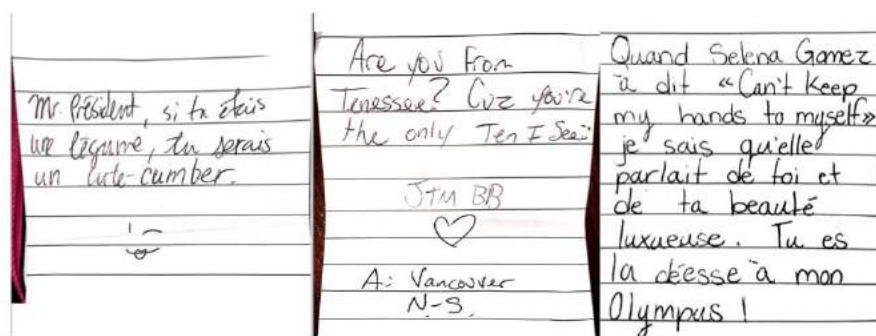 Mr. Président, si tu étais
une légume, tu serais
un cute-cumber.
Are you From
Tenessee? Cuz you're
the only Ten I See
JTM BB
A: Vancouver
N-S.
Quand Selena Gomez
à dit «Can't keep
my hands to myself»
je sais qu'elle
parlait de toi et
de ta beauté
luxueuse. Tu es
la déesse à mon
Olympus !